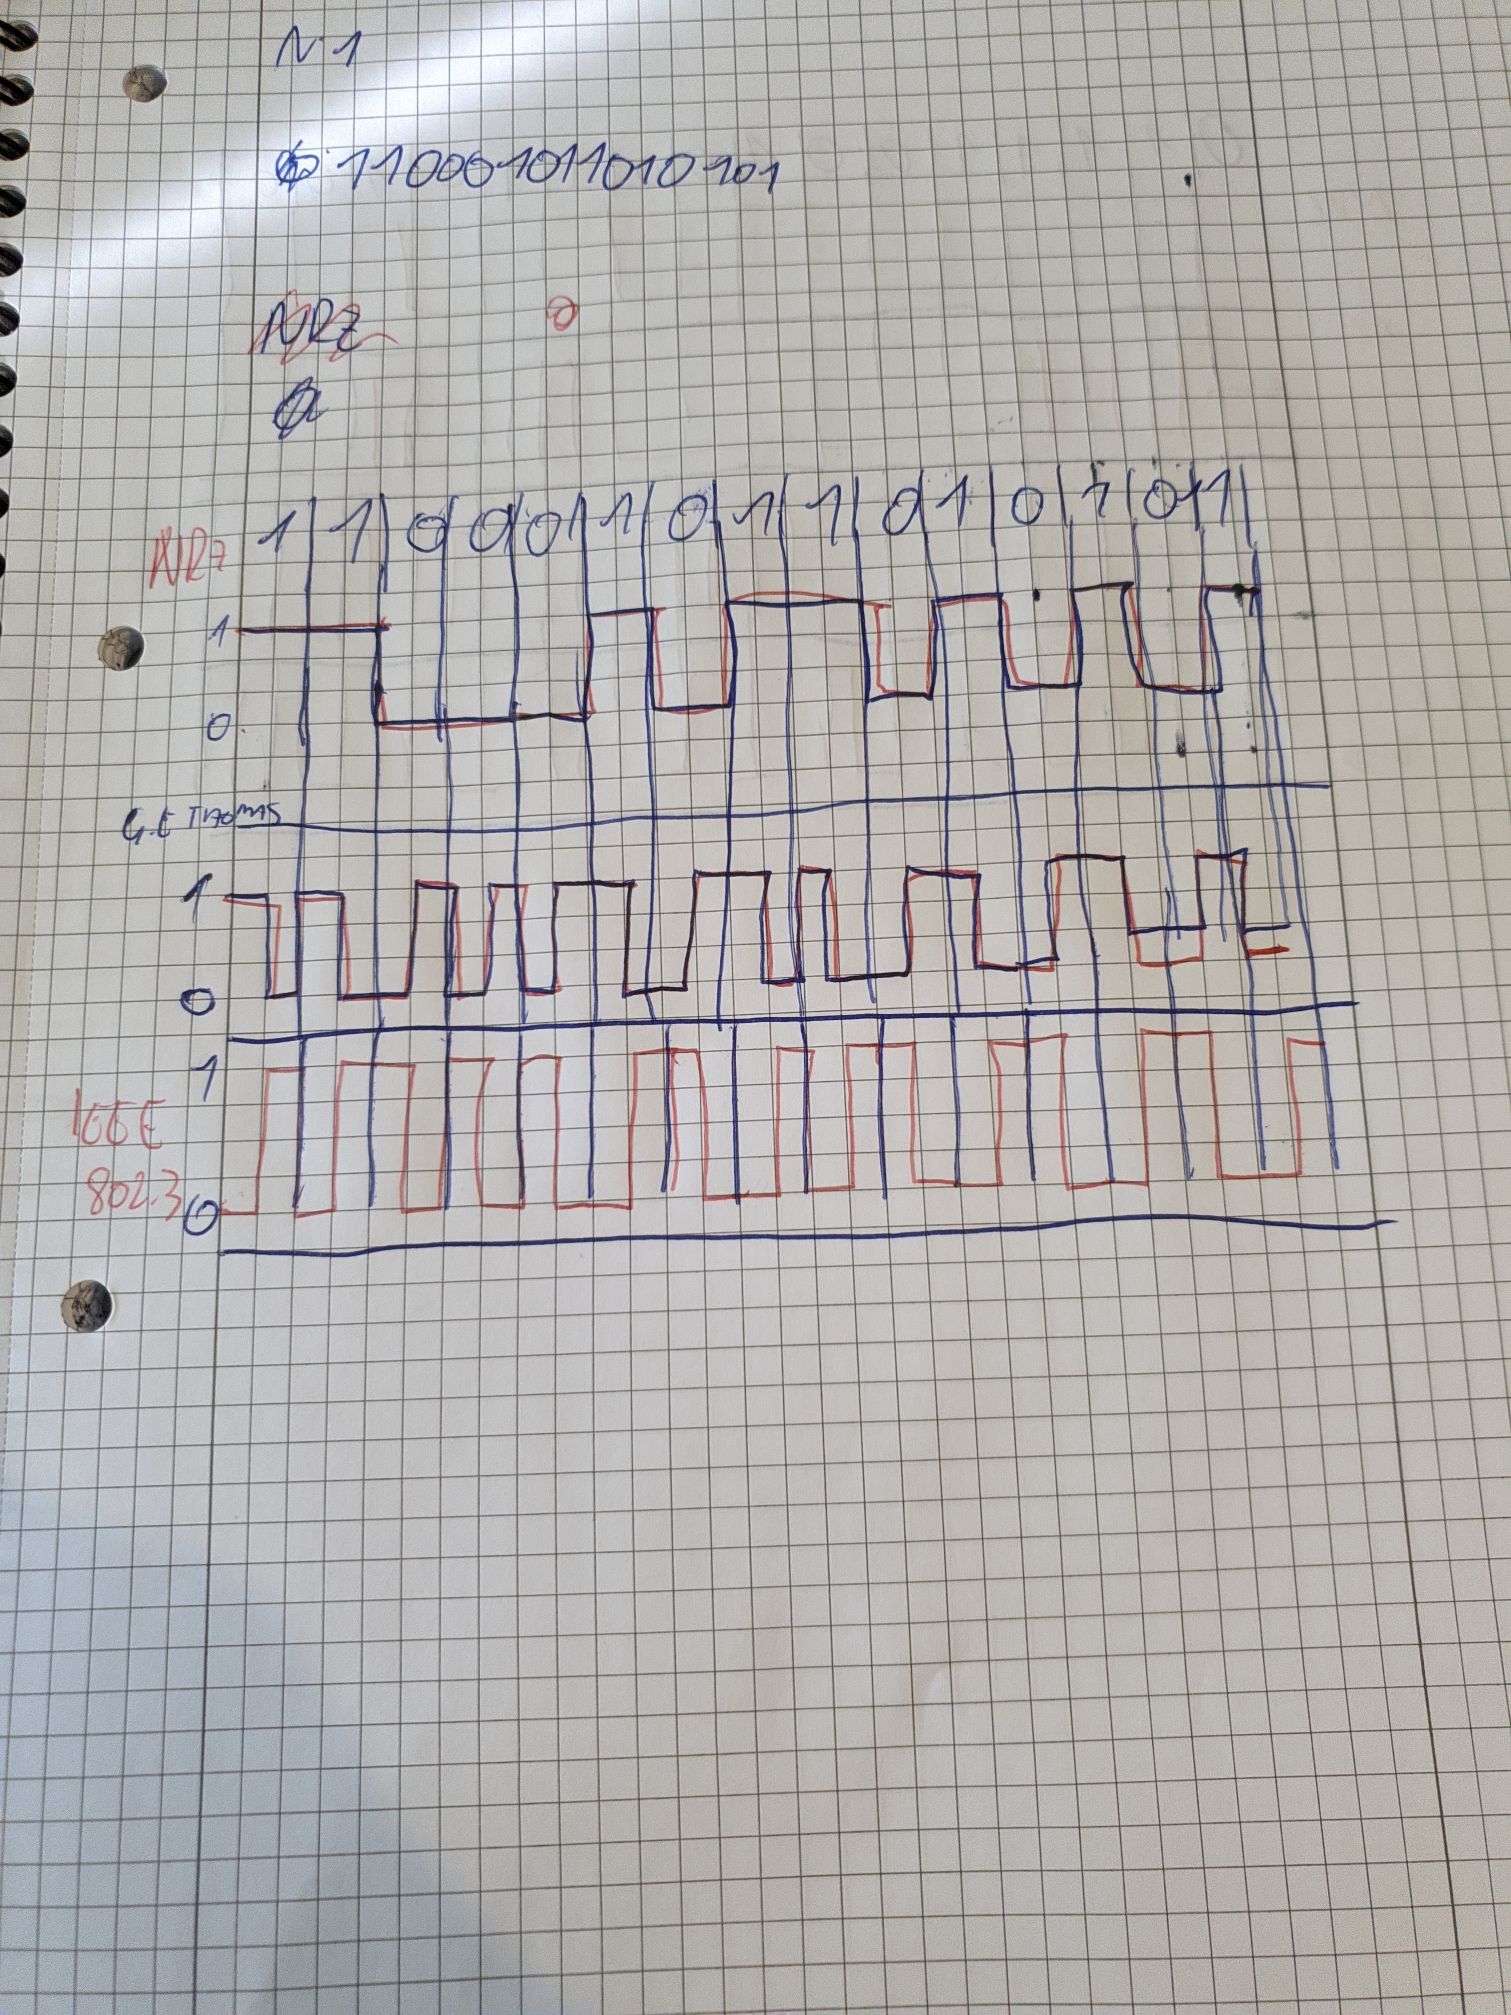 N.1
110001011010101
NRZ
0
1 1 0 0 0 1 0 1 1 0 1 0 1 0 1
NRZ
1
0
G.E THOMAS
1
0
1
IEEE
802.3
0